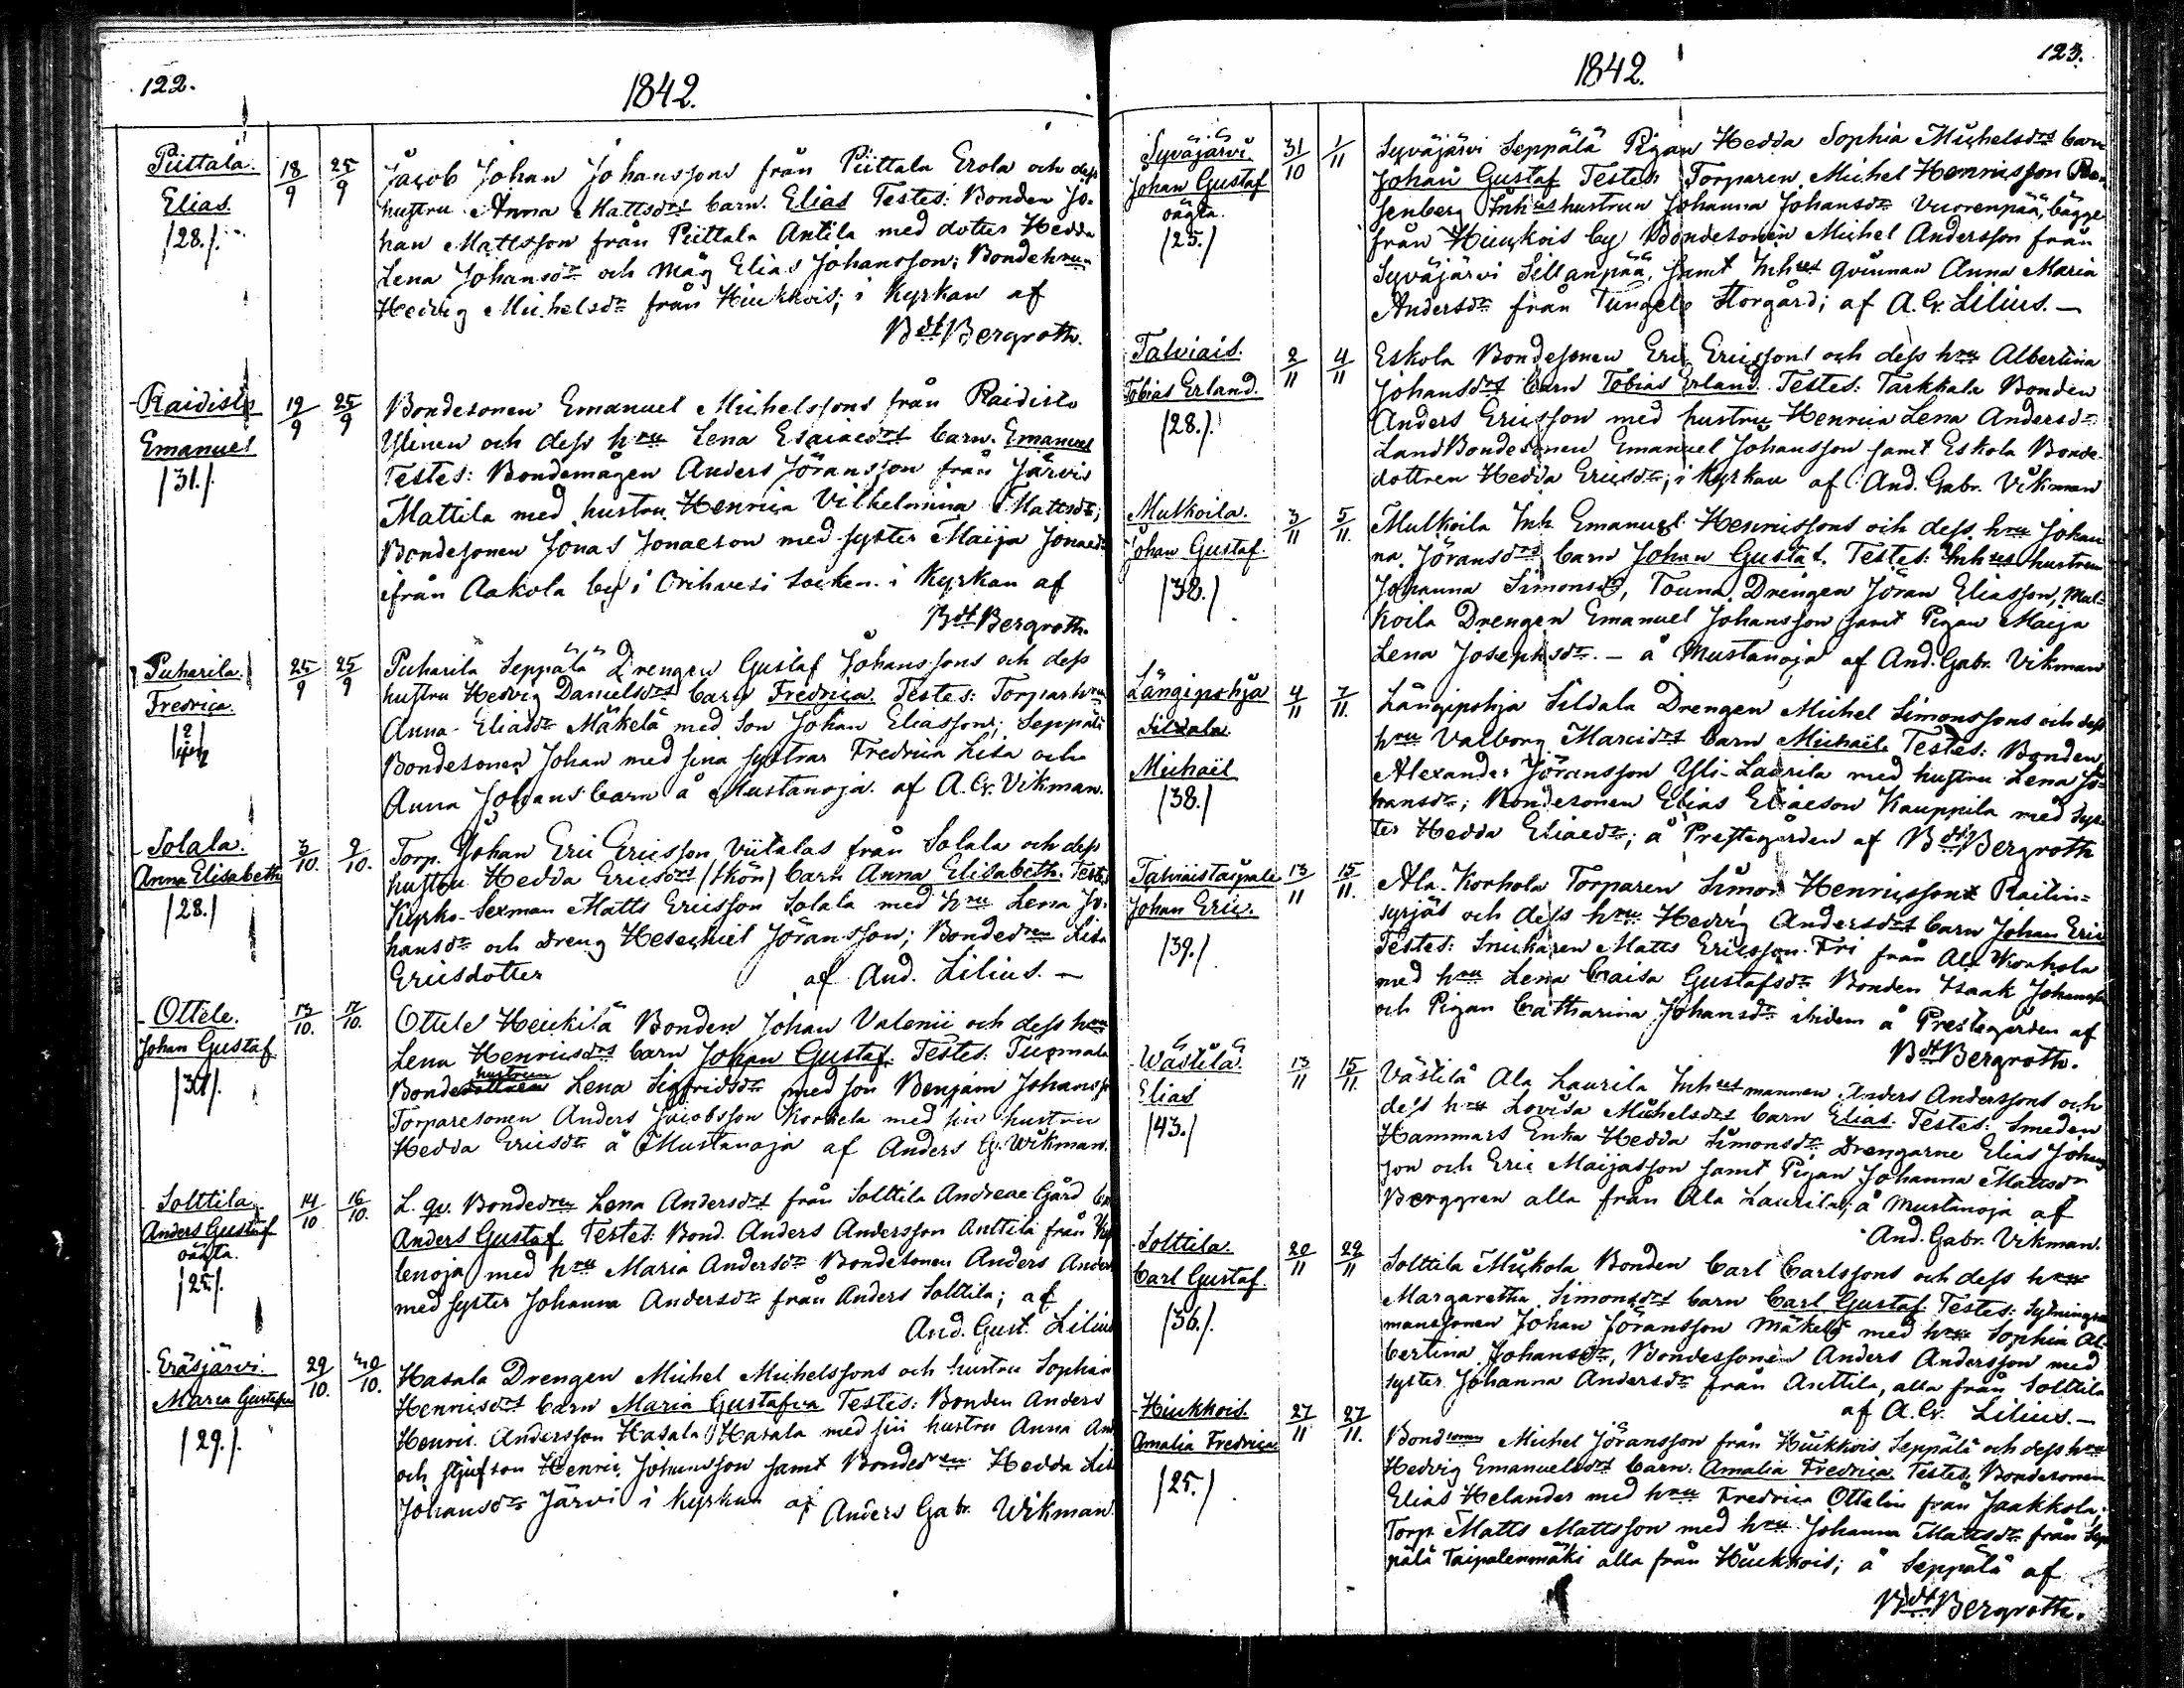 122.
1842.
Piittala.
Elias.
/28./.
18/9
25/9
Jacob Johan Johanssons från Piittala Erola och dess
hustru Anna Mattsdrs barn. Elias Testes: Bonden Jo-
han Mattsson från Piittala Antila med dotter Hedda
Lena Johansdr och måg Elias Johansson; Bondehrun
Hedvig Michelsdr från Hiukkois; i kyrkan af
Bdt Bergroth.
Raidisto
Emanuel
/31./.
19/9
25/9
Bondesonen Emanuel Michelssons från Raidisto
Ylinen och dess hru Lena Esaiaedrs barn. Emanuel
Testes: Bondemågen Anders Jöransson från Järvis
Mattila med hustru Henrica Vilhelmina Mattsdr;
Bondesonen Jonas Jonaeson med syster Maija Jonaedr
ifrån Aakola by i Orihvesi socken. i kyrkan af
Bdt Bergroth.
Puharila.
Fredrica.
25/9
25/9
Puharila Seppälä Drengen Gustaf Johanssons och dess
hustru Hedvig Danielsdrs barn Fredrica. Testes: Torparhru
Anna Eliaedr Mäkelä med Son Johan Eliasson; Seppälä
Bondesonen Johan med sina systrar Fredrica Lisa och
Anna Johans barn å Mustanoja. af A. G. Vikman.
Solala.
Anna Elisabeth
/28./
3/10.
9/10.
Torp. Johan Eric Ericsson Viitalas från Solala och dess
hustru Hedda Ericsdrs (Skön) barn Anna Elisabeth. Testes
Kyrko-Sexman Matts Ericsson Solala med hru Lena Jo-
hansdr och Dreng Hesechiel Jöransson; Bondedren Lisa
Ericsdotter af And. Lilius. —
Ottele.
Johan Gustaf
/31/.
13/10.
17/10.
Ottele Heickilä Bonden Johan Valenii och dess hru
Lena Henricsdrs barn Johan Gustaf. Testes: Tuomala
hustrun
Bondedottren Lena Sigfridsdr med son Benjam Johansson
Torparesonen Anders Jacobsson Korkela med sin hustru
Hedda Ericsdr å Mustanoja af Anders G. Wikman.
Solttila
Anders Gustaf
oägta.
/25/.
14/10
16/10.
L. qv. Bondedren Lena Andersdrs från Solttila Andreae Gård
Anders Gustaf. Testes: Bond. Anders Andersson Anttila från
lenoja med hru Maria Andersdr Bondesonen Anders Anders
med syster Johanna Andersdr från Anders Solttila; af
And. Gust. Lilius
Eräsjärvi.
Maria Gustafva
/29./.
29/10.
30/10.
Hasala Drengen Michel Michelssons och hustru Sophia
Henricsdrs barn Maria Gustafva Testes: Bonden Anders
Henric Andersson Hasala Hasala med sin hustru Anna
och Stjufson Henric Johansson samt Bondedren Hedda Lisa
Johansdr Järvi i kyrkan af Anders Gabr. Wikman.
1842.
123.
Syväjärvi
Johan Gustaf
oägta.
/25./
31/10
1/11
Syväjärvi Seppälä Pigan Hedda Sophia Michelsdrs barn
Johan Gustaf Testes: Torparen Michel Henricsson Ro-
senberg Inhses hustrun Johanna Johansdr Vuorenpää, bägge
från Hiukkois by Bondesonen Michel Andersson från
Syväjärvi Sillanpää, samt Inhses qvinnan Anna Maria
Andersdr från Tungelo Storgård; af A. G. Lilius. —
Talviais.
Tobias Erland.
/28./.
2/11
4/11
Eskola Bondesonen Eric Ericssons och dess hru Albertina
Johansdrs barn Tobias Erland. Testes: Tarkkala Bonden
Anders Ericsson med hustru Henrica Lena Andersdr
LandBondesonen Emanuel Johansson samt Eskola Bonde-
dottren Hedda Ericsdr; i kyrkan af And. Gabr. Vikman
Mulkoila.
Johan Gustaf.
/38./
3/11
5/11.
Mulkoila Inh. Emanuel Henricssons och dess hru Johan
na Jöransdrs barn Johan Gustaf. Testes: Inhses hustrun
Johanna Simonsdr, Touna Drengen Jöran Eliasson, Mul-
koila Drengen Emanuel Johansson samt Pigan Maija
Lena Josephsdr. — å Mustanoja af And. Gabr. Vikman
Längipohja
Sildala
Michaël
/38./
4/11
7/11.
Längipohja Sildala Drengen Michel Simonssons och dess
hru Valborg Marcidrs barn Michaël. Testes: Bonden
Alexander Jöransson Yli-Laurila med hustru Lena Jo-
hansdr; Bondesonen Elias Eliaeson Kauppila med sys-
ter Hedda Eliaedr; å Prestegården af Bdt Bergroth
Talviaistaipale
Johan Eric.
/39./
13/11
15/11.
Ala-Korhola Torparen Simon Henricssons Raitin-
syrjäs och dess hru Hedvig Andersdrs barn Johan Eric
Testes: Snickaren Matts Ericsson Fri från Ala Korhola
med hru Lena Caisa Gustafsdr Bonden Isaak Johansson
och Pigan Catharina Johansdr ibidem å Prestegården af
Bdt Bergroth.
Västilä.
Elias
/43./
13/11
15/11.
Västilä Ala Laurila Inhses mannen Anders Anderssons och
dess hru Lovisa Michelsdrs barn Elias. Testes: Smeden
Hammars Enka Hedda Simonsdr Drengarne Elias Johans
son och Eric Maijasson samt Pigan Johanna Mattsdr
Berggren alla från Ala Laurila; å Mustanoja af
And. Gabr. Vikman.
Solttila.
Carl Gustaf.
/36./.
20/11
29/11
Solttila Muckola Bonden Carl Carlssons och dess hru
Margaretha Simonsdrs barn Carl Gustaf. Testes: Sytnings
manssonen Johan Jöransson Mäkelä med hru Sophia Al-
bertina Johansdr, Bondessonen Anders Andersson med
syster Johanna Andersdr från Anttila, alla från Solttila
af A. G. Lilius. —
Hiukkois.
Amalia Fredrica
/25./
27/11
27/11.
Bondsonen Michel Jöransson från Hiukkois Seppälä och dess hru
Hedvig Emanuelsdrs barn: Amalia Fredrica Testes: Bondesonen
Elias Helander med hru Fredrica Ottelin från Jaakkola;
Torp. Matts Mattsson med hru Johanna Mattsdr från Sep
pälä Taipalenmäki alla från Hiukkois; å Seppälä af
Bdt Bergroth.